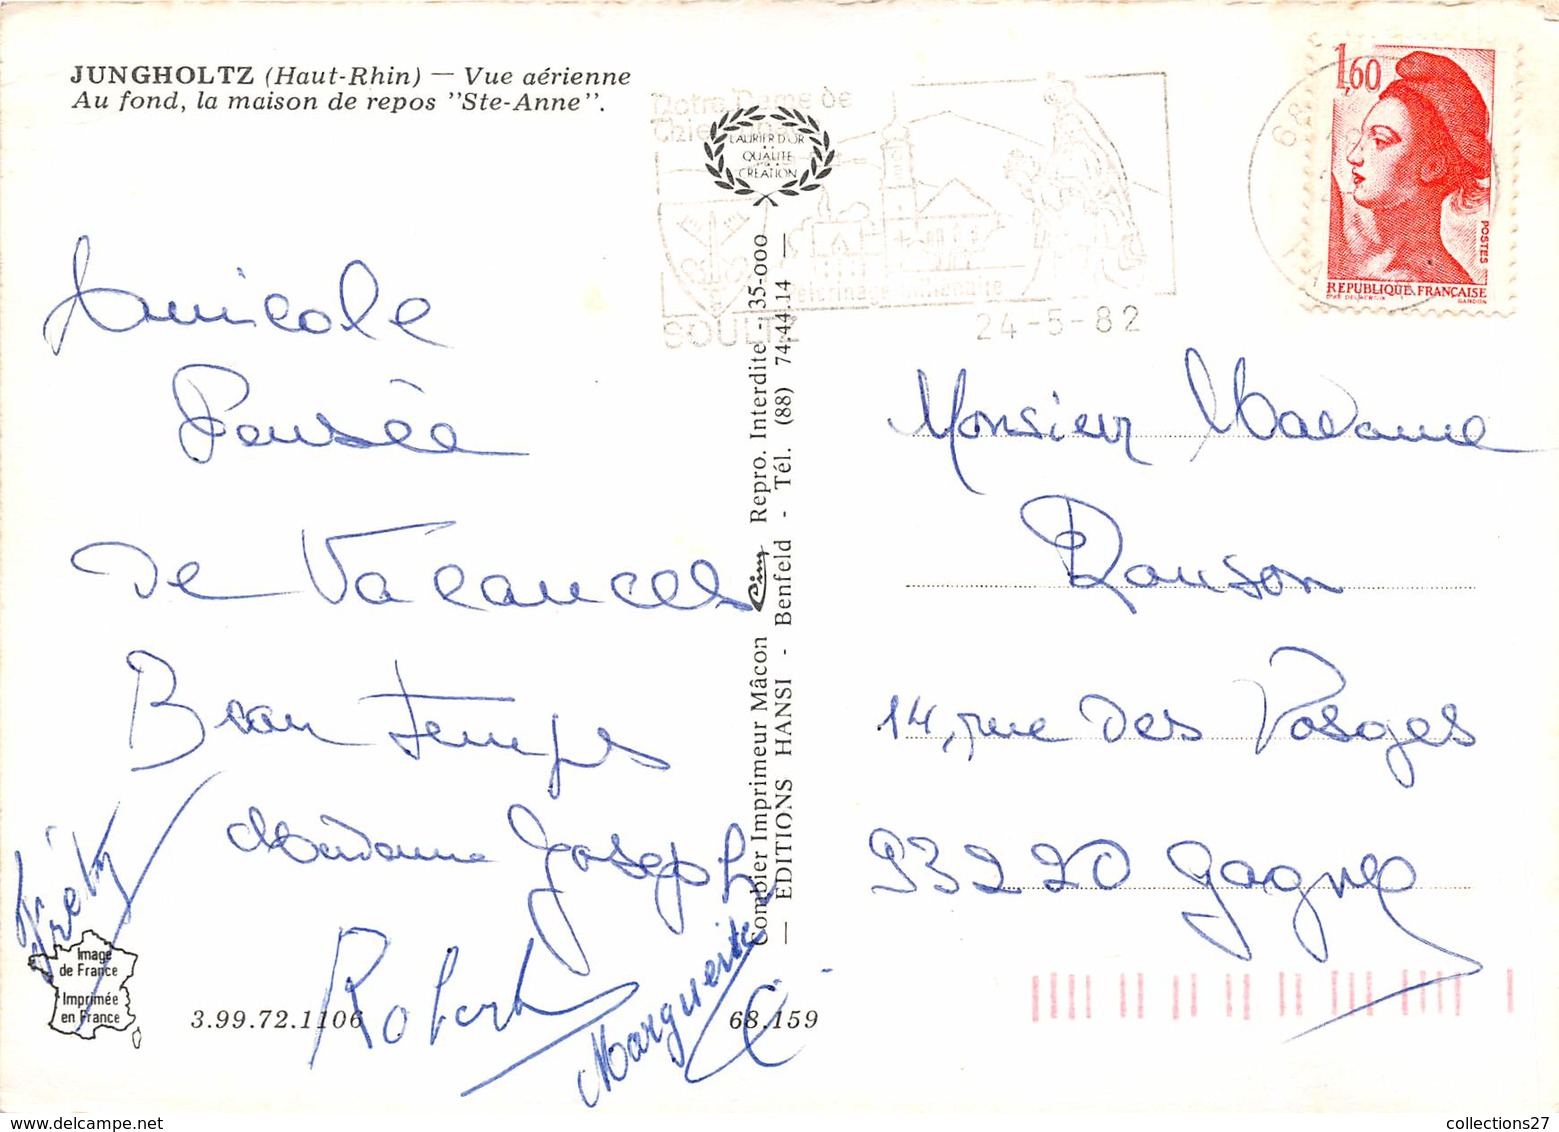 JUNGHOLTZ (Haut-Rhin) — Vue aérienne
Au fond, la maison de repos "Ste-Anne".
Notre Dame de
LAURIER D'OR
QUALITÉ
CRÉATION
pelerinage millenaire
SOULTZ
24-5-82
68
1,60
POSTES
REPUBLIQUE FRANÇAISE
D'AP. DELACROIX
GANDON
Amicale
Pensée
De Vacances
Beau temps
Madame Joseph
Robert
Marguerite
Image
de France
Imprimée
en France
3.99.72.1106
68.159
Combier Imprimeur Mâcon Cim Repro. Interdite - 35.000
— EDITIONS HANSI - Benfeld - Tél. (88) 74.44.14 —
Monsieur Madame
Ranson
14, rue Des Vosges
93220 Gagny
collections27